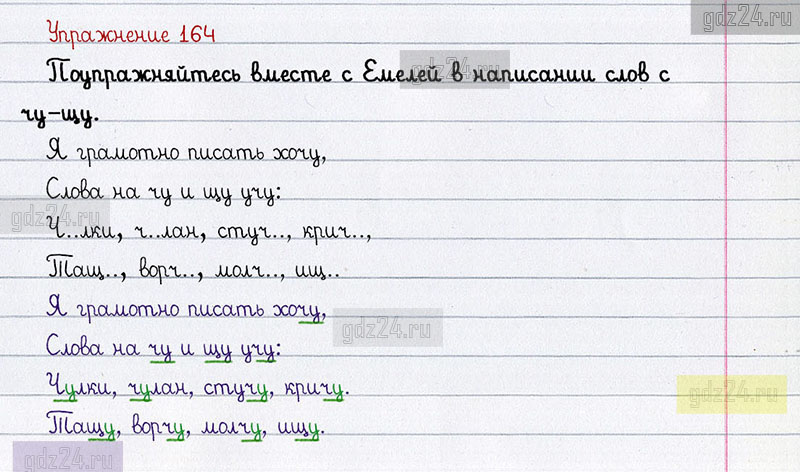 gdz24.ru
Упражнение 164
gdz24.ru
Поупражняйтесь вместе с Емелей в написании слов с
чу-щу.
Я грамотно писать хочу,
Слова на чу и щу учу:
gdz24.ru
Ч..лки, ч..лан, стуч.., крич..,
Тащ.., ворч.., молч.., ищ..
Я грамотно писать хочу,
gdz24.ru
Слова на чу и щу учу:
Чулки, чулан, стучу, кричу.
gdz24.ru
Тащу, ворчу, молчу, ищу.
gdz24.ru